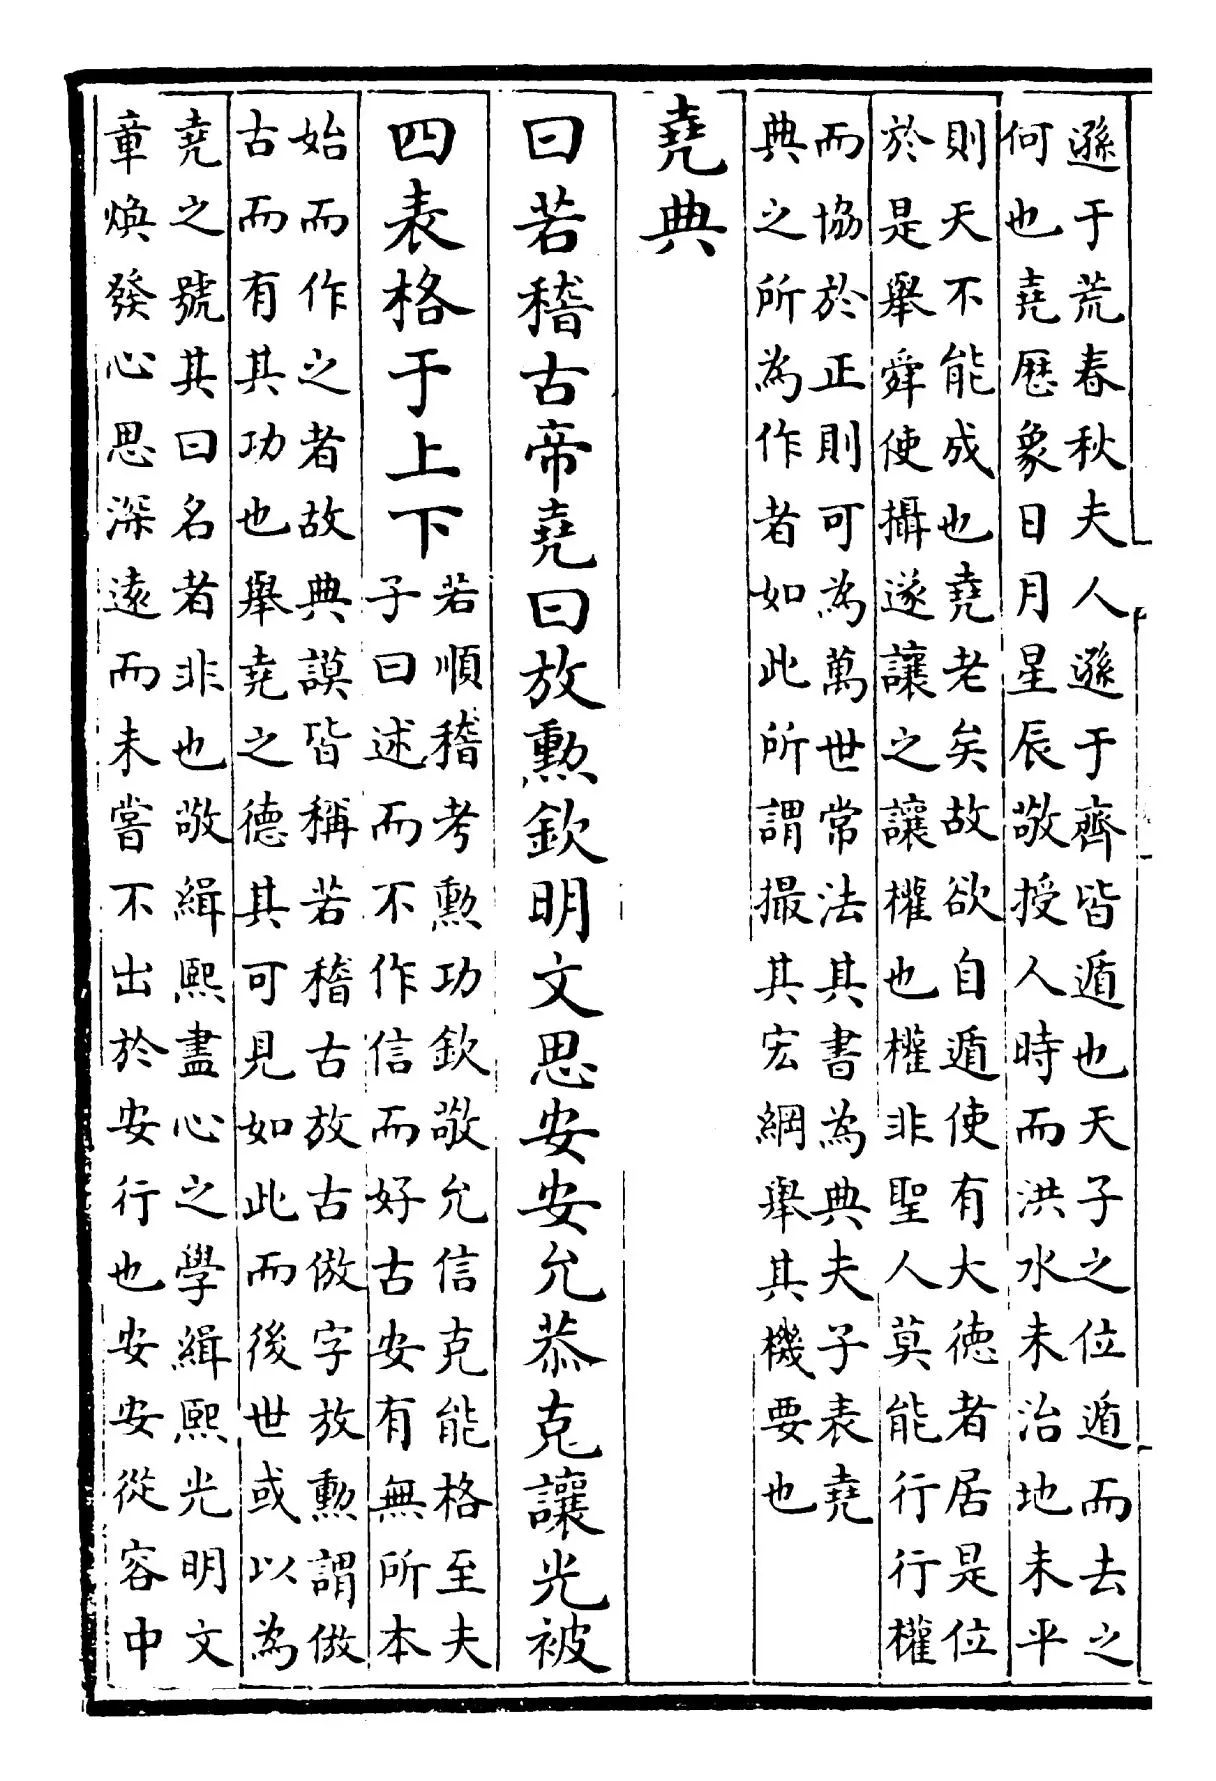 遜于荒春秋夫人遜于齊皆遁也天子之位遁而去之
何也堯厯象日月星辰敬授人時而洪水未治地未平
則天不能成也堯老矣故欲自遁使有大德者居是位
於是舉舜使攝遂讓之讓權也權非聖人莫能行行權
而協於正則可為萬世常法其書為典夫子表堯
典之所為作者如此所謂撮其宏綱舉其機要也
堯典
曰若稽古帝堯曰放勳欽明文思安安允恭克讓光被
四表格于上下
若順稽考勳功欽敬允信克能格至夫
子曰述而不作信而好古安有無所本
始而作之者故典謨皆稱若稽古放古倣字放勳謂倣
古而有其功也舉堯之德其可見如此而後世或以為
堯之號其曰名者非也敬緝熙盡心之學緝熙光明文
章煥發心思深遠而未嘗不出於安行也安安從容中